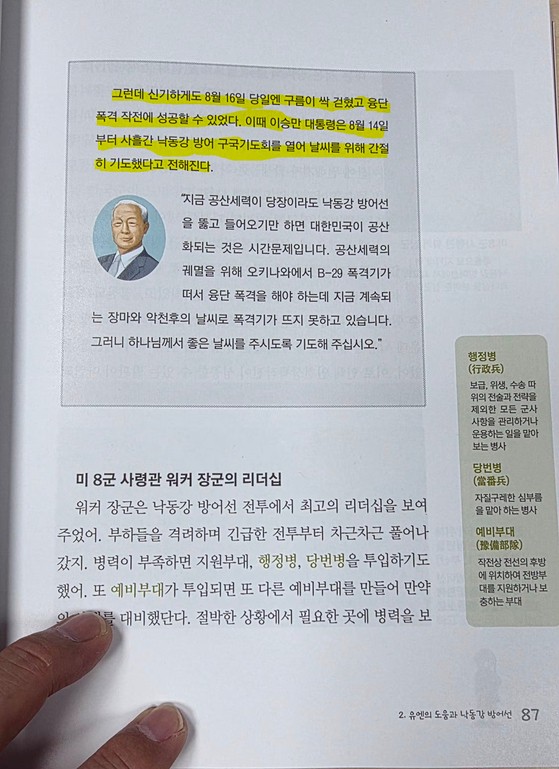 그런데 신기하게도 8월 16일 당일엔 구름이 싹 걷혔고 융단
폭격 작전에 성공할 수 있었다. 이때 이승만 대통령은 8월 14일
부터 사흘간 낙동강 방어 구국기도회를 열어 날씨를 위해 간절
히 기도했다고 전해진다.
"지금 공산세력이 당장이라도 낙동강 방어선
을 뚫고 들어오기만 하면 대한민국이 공산
화되는 것은 시간문제입니다. 공산세력의
궤멸을 위해 오키나와에서 B-29 폭격기가
떠서 융단 폭격을 해야 하는데 지금 계속되
는 장마와 악천후의 날씨로 폭격기가 뜨지 못하고 있습니다.
그러니 하나님께서 좋은 날씨를 주시도록 기도해 주십시오."
미 8군 사령관 워커 장군의 리더십
워커 장군은 낙동강 방어선 전투에서 최고의 리더십을 보여
주었어. 부하들을 격려하며 긴급한 전투부터 차근차근 풀어나
갔지. 병력이 부족하면 지원부대, 행정병, 당번병을 투입하기도
했어. 또 예비부대가 투입되면 또 다른 예비부대를 만들어 만약
대비했단다. 절박한 상황에서 필요한 곳에 병력을 보
행정병
(行政兵)
보급, 위생, 수송 따
위의 전술과 전략을
제외한 모든 군사
사항을 관리하거나
운용하는 일을 맡아
보는 병사
당번병
(當番兵)
자질구레한 심부름
을 맡아 하는 병사
예비부대
(豫備部隊)
작전상 전선의 후방
에 위치하여 전방부
대를 지원하거나 보
충하는 부대
2. 유엔의 도움과 낙동강 방어선 87